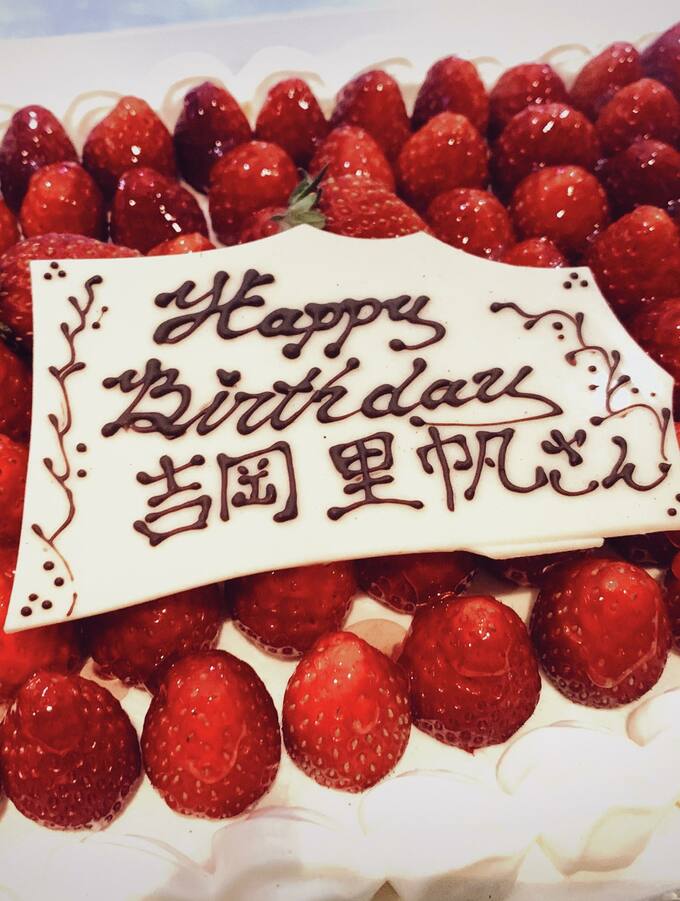 Happy
Birthday
吉岡 里帆さん